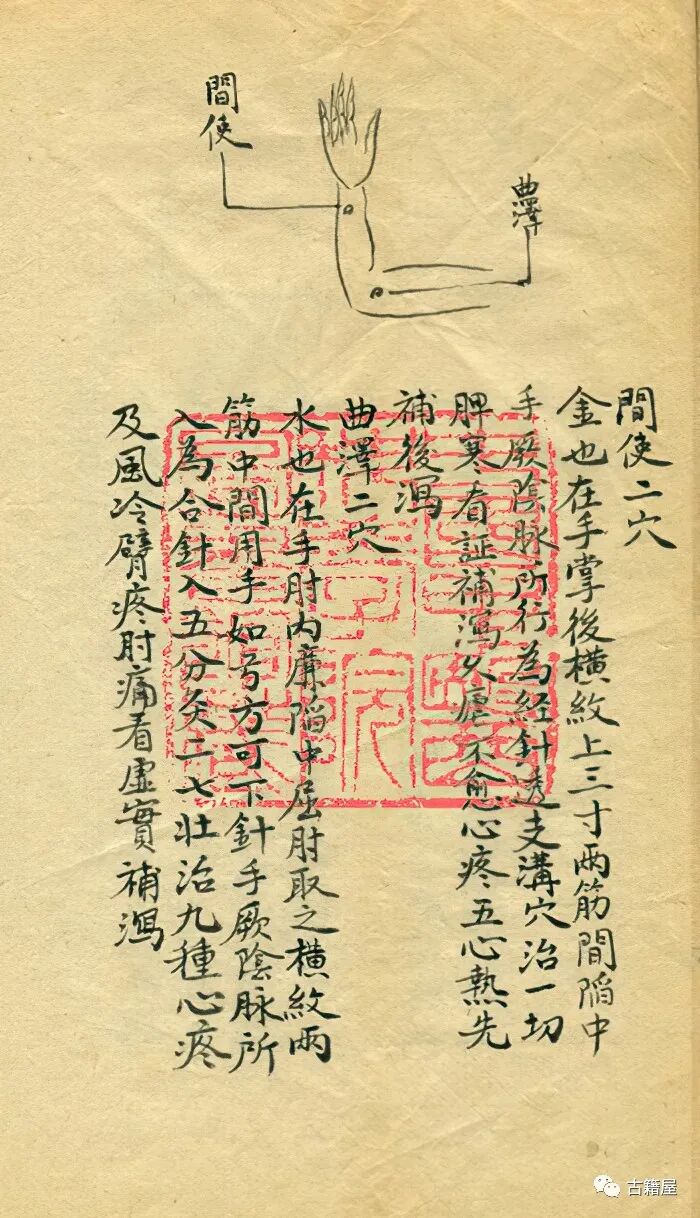 間使
曲澤
間使二穴
金也在手掌後橫紋上三寸兩筋間陷中
手厥陰脈所行為經針透支溝穴治一切
脾寒看証補瀉久瘧不愈心疼五心熱先
補後瀉
曲澤二穴
水也在手肘內廉陷中屈肘取之橫紋兩
筋中間用手如弓方可下針手厥陰脈所
入為合針入五分灸二七壯治九種心疼
及風冷臂疼肘痛看虛實補瀉
古籍屋